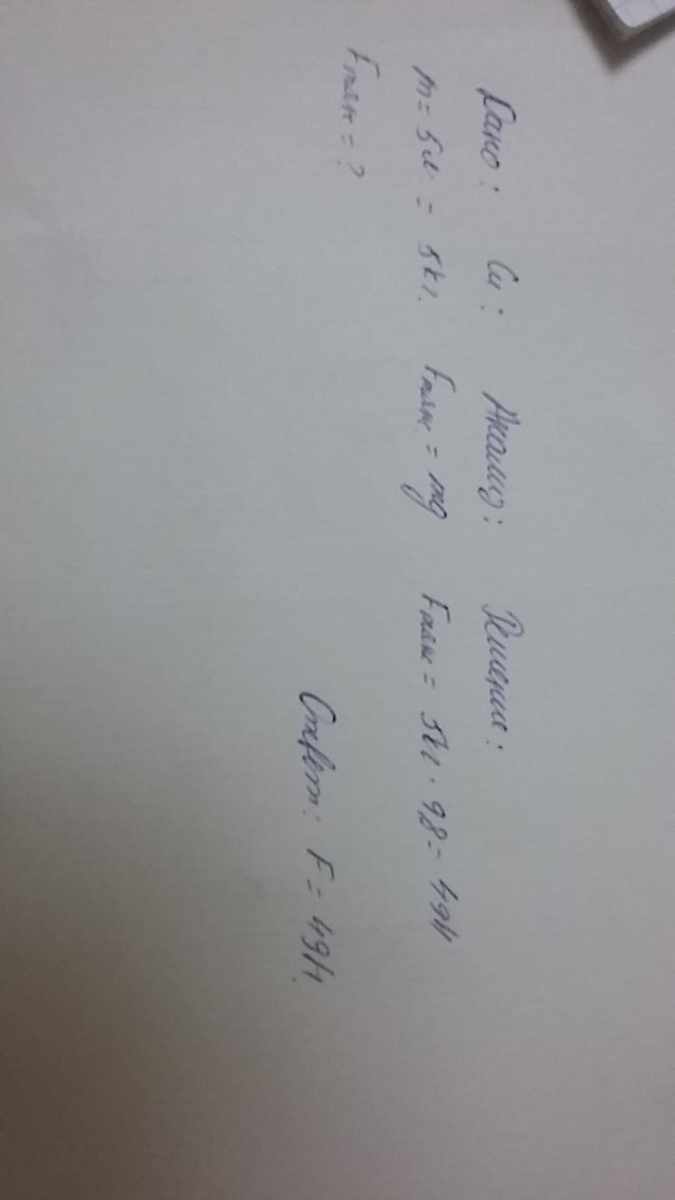 Дано: Си: Анализ: Решение:
m = 5л = 5кг. Fтяж. = mg Fтяж = 5кг · 9,8 = 49Н
Fтяж = ?
Ответ: F = 49Н.